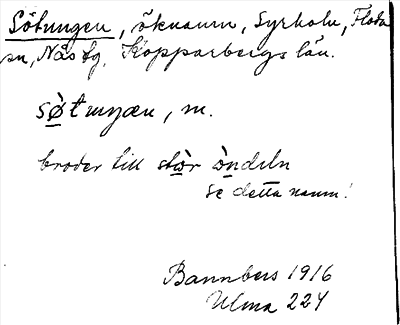 Sötungen, öknamn, Syrholn, Floda
sn, Nås fg, Kopparbergs län.
sø̀tuŋæn, m.
broder till stòr òndeln
se detta namn!
Bannbers 1916
Ulma 224